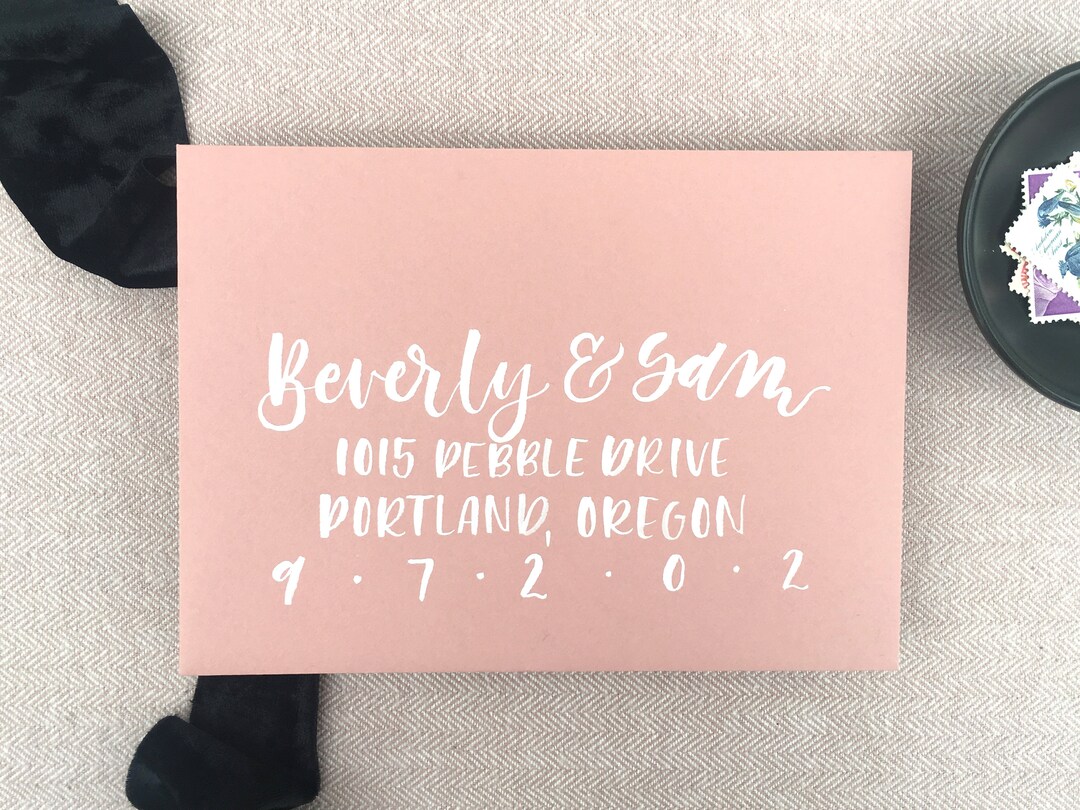 Beverly & Sam
1015 PEBBLE DRIVE
PORTLAND, OREGON
9 · 7 · 2 · 0 · 2